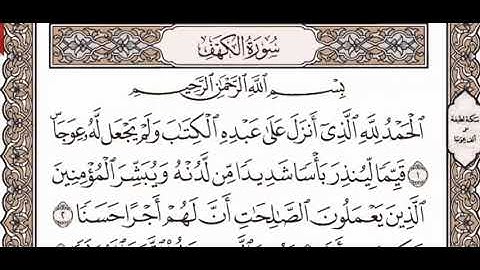 سُورَةُ الكَهْفِ
بِسْمِ اللَّهِ الرَّحْمَٰنِ الرَّحِيمِ
الْحَمْدُ لِلَّهِ الَّذِي أَنزَلَ عَلَىٰ عَبْدِهِ الْكِتَٰبَ وَلَمْ يَجْعَل لَّهُ عِوَجَا ۜ
١ قَيِّمًا لِّيُنذِرَ بَأْسًا شَدِيدًا مِّن لَّدُنْهُ وَيُبَشِّرَ الْمُؤْمِنِينَ
الَّذِينَ يَعْمَلُونَ الصَّٰلِحَٰتِ أَنَّ لَهُمْ أَجْرًا حَسَنًا ٢